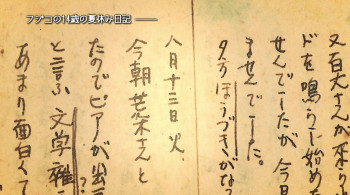 フジコの14歳の夏休み日記 ――
さんが来
ドを鳴らし始め
せんでしたが 今
夕方ほうづきがな
ませんでした。
八月十三日 火、
今朝荒木さんと
たのでピアノが出
と言ふ 文学雑
あまり面白くて